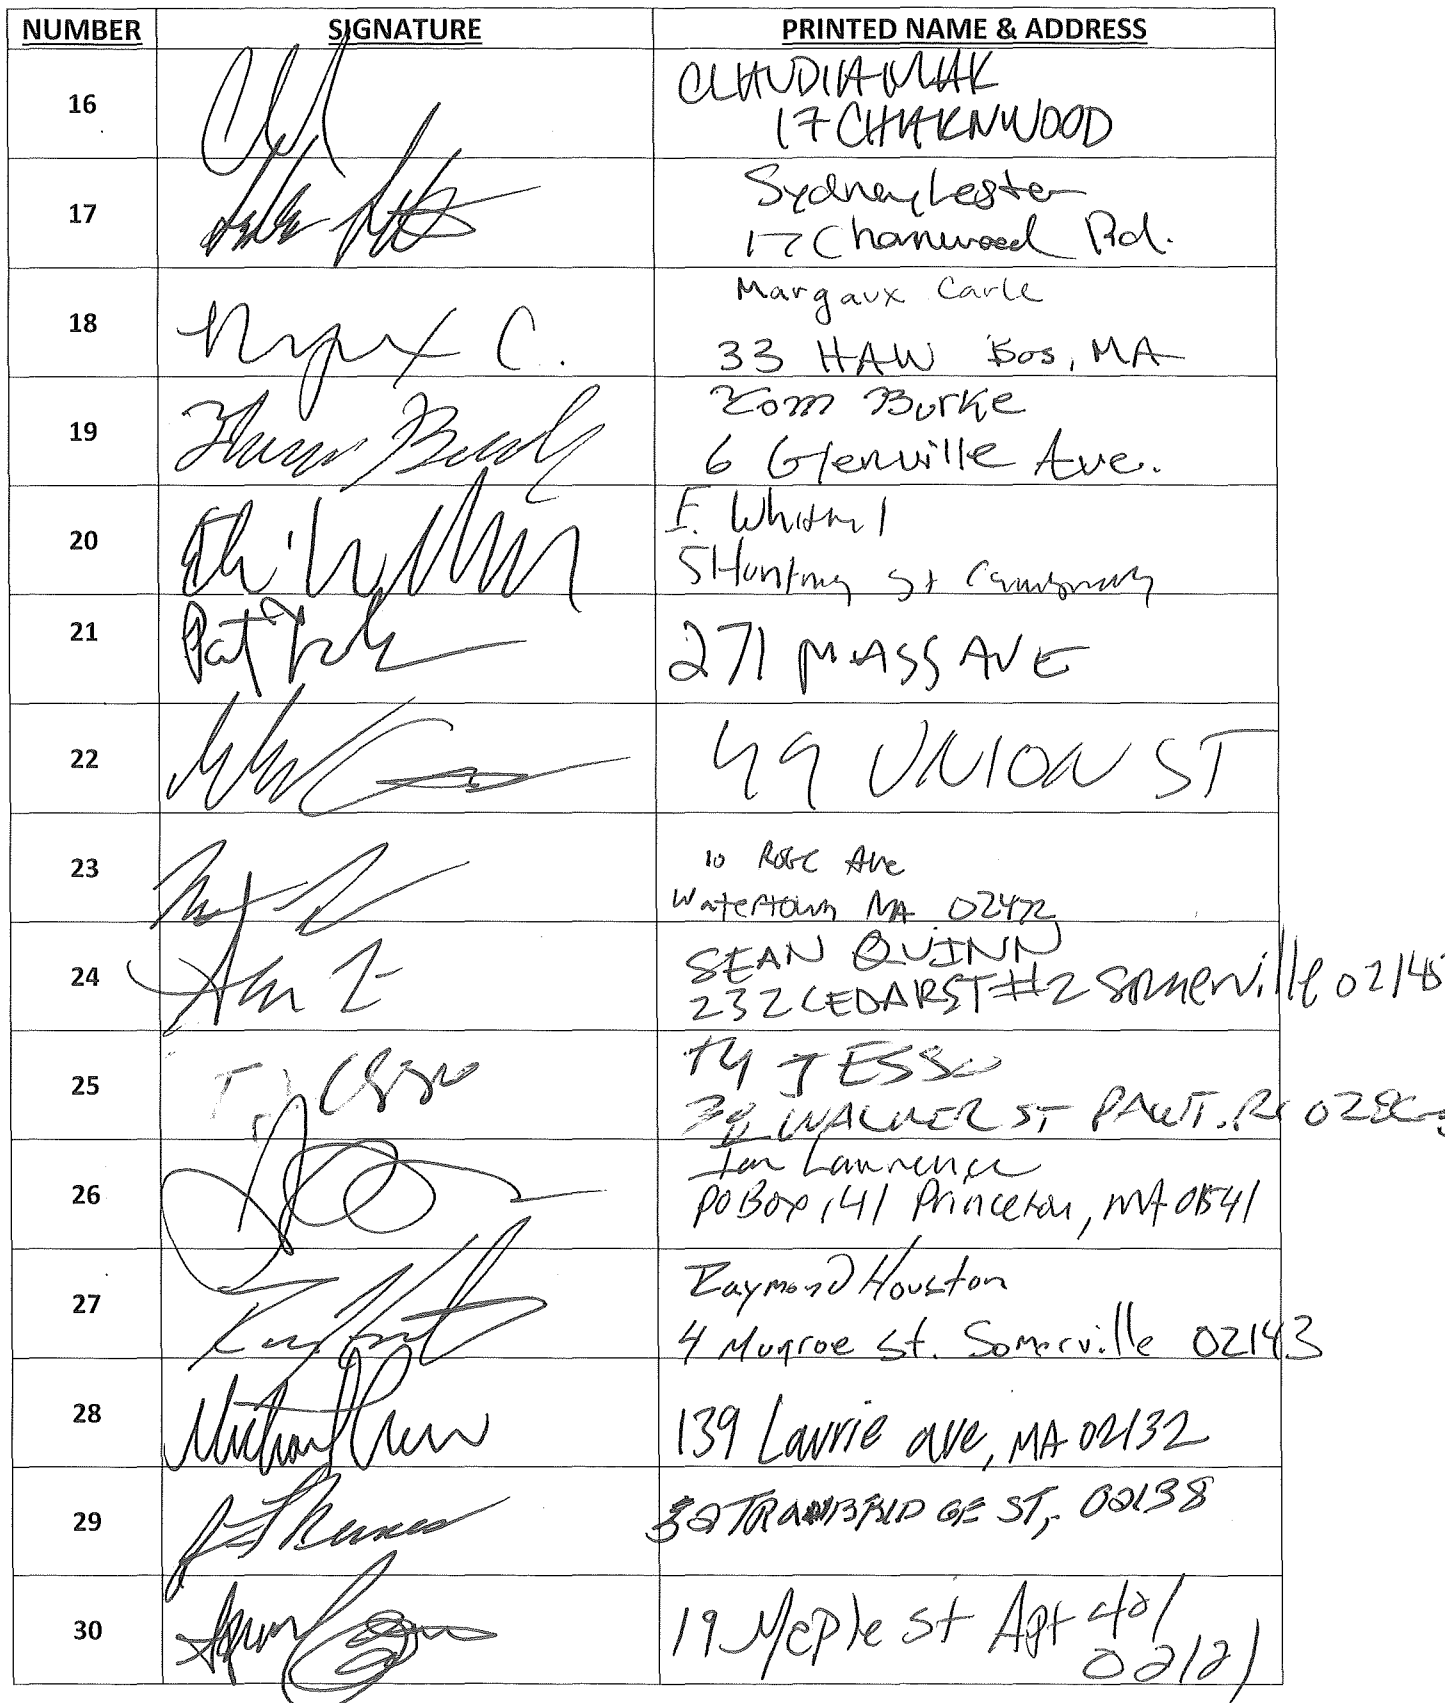 NUMBER SIGNATURE PRINTED NAME & ADDRESS
16 CLAUDIA MAK
17 CHARNWOOD
17 Sydney Lester
17 Charnwood Rd.
18 Margaux C. Margaux Carle
33 HAW Bos, MA
19 Thomas Burke Tom Burke
6 Glenville Ave.
20 E. Whitm
5 Hunting St
21 Pat 271 MASS AVE
22 49 UNION ST
23 10 Ave
Watertown MA 02472
24 SEAN QUINN
232 CEDAR ST #2 Somerville 02145
25 Ty Jesso TY JESSO
WALKER ST PAWT. RI
26 Ian Lawrence
PO Box 141 Princeton, MA 01541
27 Raymond Houston
4 Munroe St. Somerville 02143
28 Michael 139 Laurie ave, MA 02132
29 32 TROWBRIDGE ST, 02138
30 19 Maple St Apt 401
02121